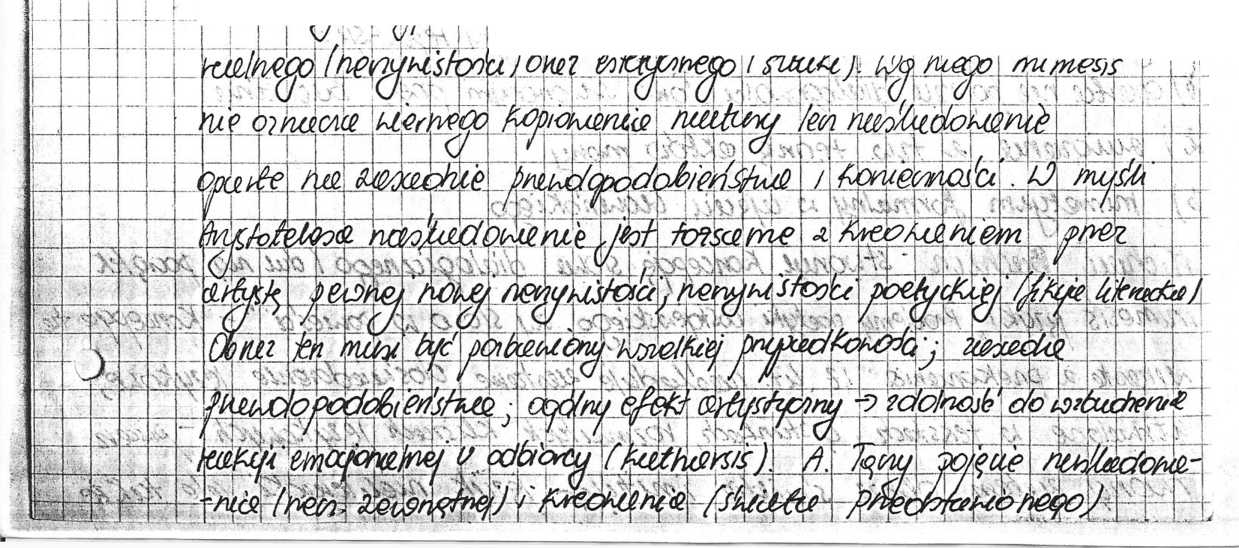 realnego (rzeczywistości) oraz estetycznego (sztuki). Wg niego mimesis
nie oznacza wiernego kopiowania natury lecz naśladowanie
oparte na zasadzie prawdopodobieństwa i konieczności. W myśli
Arystotelesa naśladowanie jest tożsame z kreowaniem przez
artystę pewnej nowej rzeczywistości, rzeczywistości poetyckiej (fikcja literacka)
Obraz ten musi być pozbawiony wszelkiej przypadkowości; zasada
prawdopodobieństwa; ogólny efekt artystyczny → zdolność do wzbudzenia
reakcji emocjonalnej u odbiorcy (kathársis). A. łączy pojęcie naśladowa-
-nia (rzecz. zewnętrznej) i kreowania (świata przedstawionego)